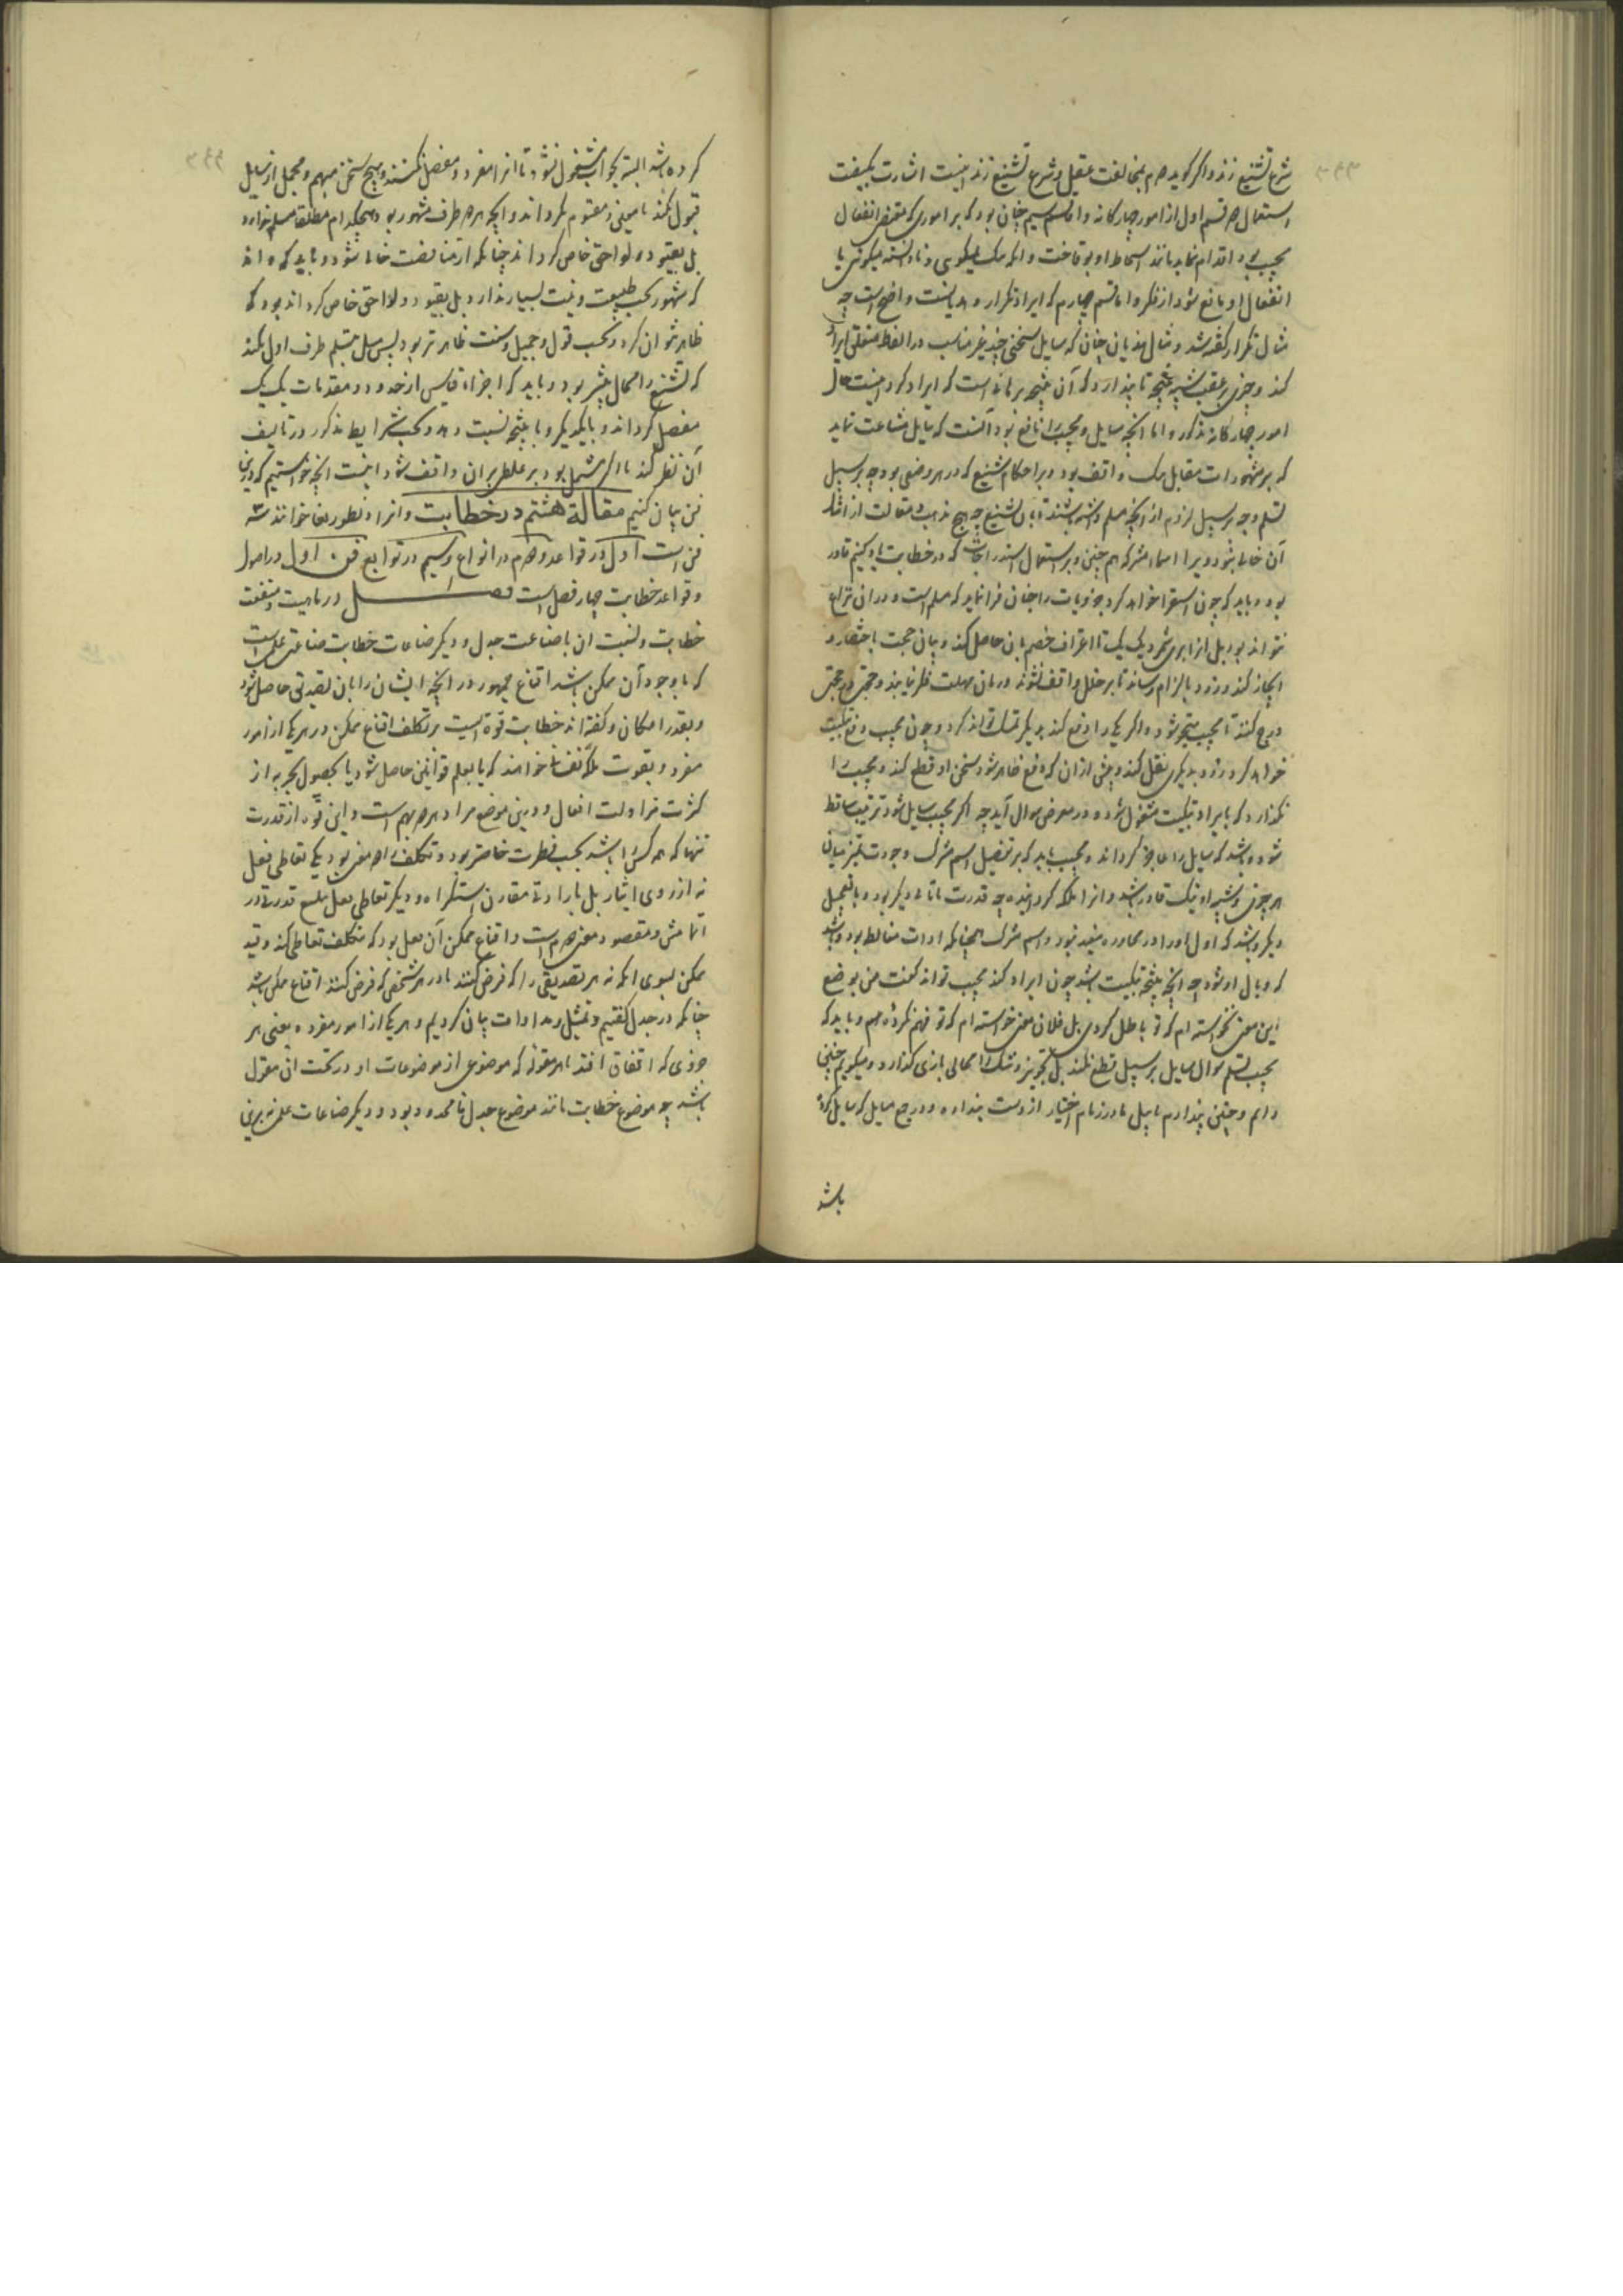 شرع تشنیع زند و اگر گوید هم بمخالفت عقل و شرع تشنیع زند اینست اشارت بکیفیت
استعمال هر قسم اول از امور چهارگانه و اما قسم سیم چنان بود که بر اموری که مقتضی انفعال
مجیب بود اقدام نماید مانند اسقاط او بوقاحت و آنکه نیک نمیگوی و نادانسته میگوئی یا
انفعال او مانع شود از فکر و اما قسم چهارم که ایراد تکرار و هذیانست واضح است چه
مثال تکرار گفته شد و مثال هذیان چنان که سایل سخنی چند غیر مناسب در الفاظ منغلق ایراد
کند و چیزی در عقب شبیه بنتیجه تا پندارد که آن نتیجه برهانست که ایراد کرد اینست حال
امور چهارگانه مذکور و اما آنچه سایل و مجیب را نافع بود آنست که سایل مشاعت نماید
که بر مشهورات مقابل یک واقف بود و بر احکام شنیع که در هر وضعی بود چه بر سبیل
تسلم و چه بر سبیل لزوم از آنچه مسلم داشته باشند تا بان تشنیع چه هیچ مذهب و مقالت از امثال
آن خالی نبود و بر اسماء مشترکه همچنین و بر استعمال استدراجات که در خطابت یاد کنیم قادر
بود و باید که چون استقرا خواهد کرد جزویات را چنان فرا نماید که مسلم است و در آن نزاع
نتواند بود بل از آن بر می‌شمرد یک یک تا اعتراف خصم بان حاصل کند و بیان حجت باختصار و
ایجاز کند و زود بالزام رساند تا بر خلل واقف نشوند و زمان مهلت نظر نیابند و حجتی در حجتی
درج کند تا مجیب متحیر شود و اگر یکی را دفع کند بدیگر تمسک تواند کرد و چون مجیب دفع تبکیت
خواهد کرد زود بدیگری نقل کند و پیش از آن که دفع ظاهر شود سخن او قطع کند و مجیب را
نگذارد که بایراد تبکیت مشغول شود و در معرض سوال آید چه اگر مجیب سایل شود ترتیب ساقط
شود و باشد که سایل را عاجز گرداند و مجیب باید که بر تفصیل اسم مشترک و جودت تمیز میان
هر چیزی و شبیه او نیک قادر باشد و آنرا ملکه گرداند چه قدرت باتانی دیگر بود و با تعجیل
دیگر و باشد که اول او را در محاوره مفید نبود و اسم مشترک همچنانکه ادات مغالط بود باشد
که وبال او شود چه آنچه نتیجه تبکیت باشد چون ایراد کند مجیب تواند گفت من بوضع
این معنی نخواسته‌ام که تو باطل کردی بل فلان معنی خواسته‌ام که تو فهم نکردهٔ و باید که
مجیب تسلم سوال سایل بر سبیل قطع نکند بل بتجویز و شک و مجالی بازی گذارد و میگوید چنین
دانم و چنین پندارم تا سایل نادر زمام اختیار از دست بنداده و در جمع مسایل که سایل ایراد
باشد
کرده باشد البته بجواب مشغول نشود تا آنرا مفرد و مفصل نکنند و هیچ سخن مبهم و مجمل از سایل
قبول نکند تا معین و مفهوم نگرداند و آنچه هر دو طرف مشهور بود هیچکدام مطلقا مسلم ندارد
بل بقیود و لواحق خاص گرداند چنانکه از مناقضت خالی شود و باید که داند
که مشهور بحسب طبیعت و نیت بسیار ندارد بل بقیود و لواحق خاص گرداند بود که
ظاهر نتوان کرد و بحسب قول و جمیل و سنت ظاهرتر بود پس میل بتسلم طرف اول نکند
که تشنیع را مجال بیشتر بود و باید که اجزاء قیاس از حدود و مقدمات یک یک
مفصل گرداند و با یکدیگر و با نتیجه نسبت دهد و بحسب شرایط مذکور در تالیف
آن نظر کند تا اگر مشتمل بود بر غلطی بر آن واقف شود اینست آنچه خواستیم که درین
فن بیان کنیم مقالة هشتم در خطابت و آنرا ریطوریقا خوانند سه
فن است اول در قواعد دوم در انواع سیم در توابع فن اول در اصول
و قواعد خطابت چهار فصل است فصل در ماهیت و منفعت
خطابت و نسبت آن با صناعت جدل و دیگر صناعات خطابت صناعتی علمی است
که با وجود آن ممکن باشد اقناع جمهور در آنچه ایشان را بان تصدیقی حاصل شود
و بقدر امکان و گفته‌اند خطابت قوة است بر تکلف اقناع ممکن در هر یکی از امور
مفرد و بقوت ملکه نفسانی خواهند که یا بتعلم قوانین حاصل شود یا بحصول تجربه از
کثرت مزاولت افعال و درین موضع مراد هر دو بهم است و این قوه از قدرت
تنها که همه کس را باشد بحسب فطرت خاصتر بود و تکلف را دو معنی بود یکی تعاطی فعل
نه از روی ایثار بل با ارادتی مقارن استکراه و دیگر تعاطی فعل بابلغ قدرتی در
اتمامش و مقصود معنی دوم است و اقناع ممکن آن فعل بود که متکلف تعاطی کند و قید
ممکن بسوی آنکه نه هر تصدیقی را که فرض کنند یا در هر شخصی که فرض کنند اقناع ممکن باشد
چنانکه در جدل گفتیم و تمثیل و مداوات بیان کردیم و هر یکی از امور مفرده یعنی هر
جزوی که اتفاق افتد یا هر مقوله که موضوعی از موضوعات او در تحت آن مقوله
باشد چه موضوع خطابت مانند موضوع جدل نامحدود بود و دیگر صناعات علمی برین